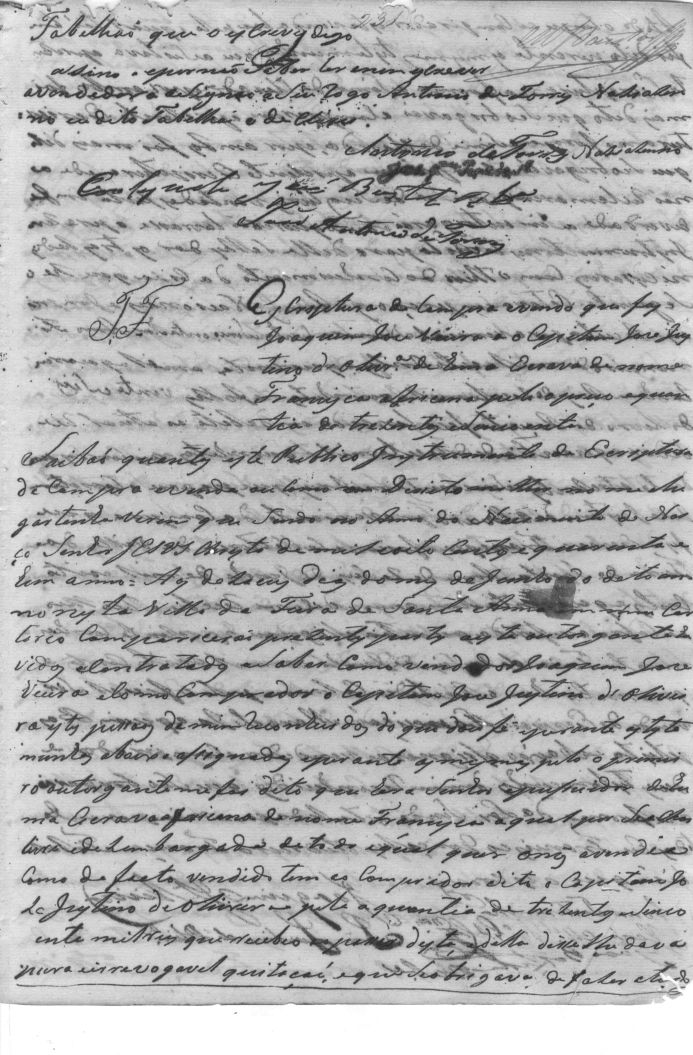 231
Tabelhaõ que o escrevy digo
asino. e por naõ saber ler e nem escrever
a vendedora asignou a seu rogo Antonio de Torres
eu dito Tabelhaõ o de Claro.
Antonio de Torres
José
Antonio de Torres
Escriptura de Compra e venda que fez
Joaquim Joze Vieira a o Capitam Joze Jus
tino d'Olivrª de huma Escrava de nome
Francisca Africana pelo o preço e quan
tia de trezentos e Sincoenta
Saibaõ quantos este Publico Instrumento de Escriptura
de Compra e venda ou Como em Direito milhor nome e lu
gar tenha virem que Sendo no Anno do Nacimento de Nos
ço Senhor JESUS Christo de mil e oito Centos e quarenta e
hum anno = Aos dezaceis dias do mes de Junho do dito an
no nesta Villa da Feira de Santa Anna em meu Car
torio Compariceraõ prezentes partes a esta outorgante de
vidos e Contratados a Saber Como vendedor Joaquim Joze
Vieira e Como Comprador o Capitam Joze Justino d'Olivei
ra estes pessoas de mim reconhecidos do que dou fé e perante as teste
munhas abaixo asignadas e perante as mesmas pelo o primei
ro outorgante me foi dito que hera Senhor e pussuidor de hu
ma Escrava Africana de nome Francisca a qual por Se achar
livre e dezembargada de todo e qual quer onus a vendia
Como de facto vendido tem ao Comprador dito o Capitam Jo
ze Justino de Oliveira pela a quantia de trezentos e Sinco
enta mil reis que recebeo ao passar desta e della disse lhe dava
pura e irrevogavel quitaçaõ, e que se obrigava, de fazer esta